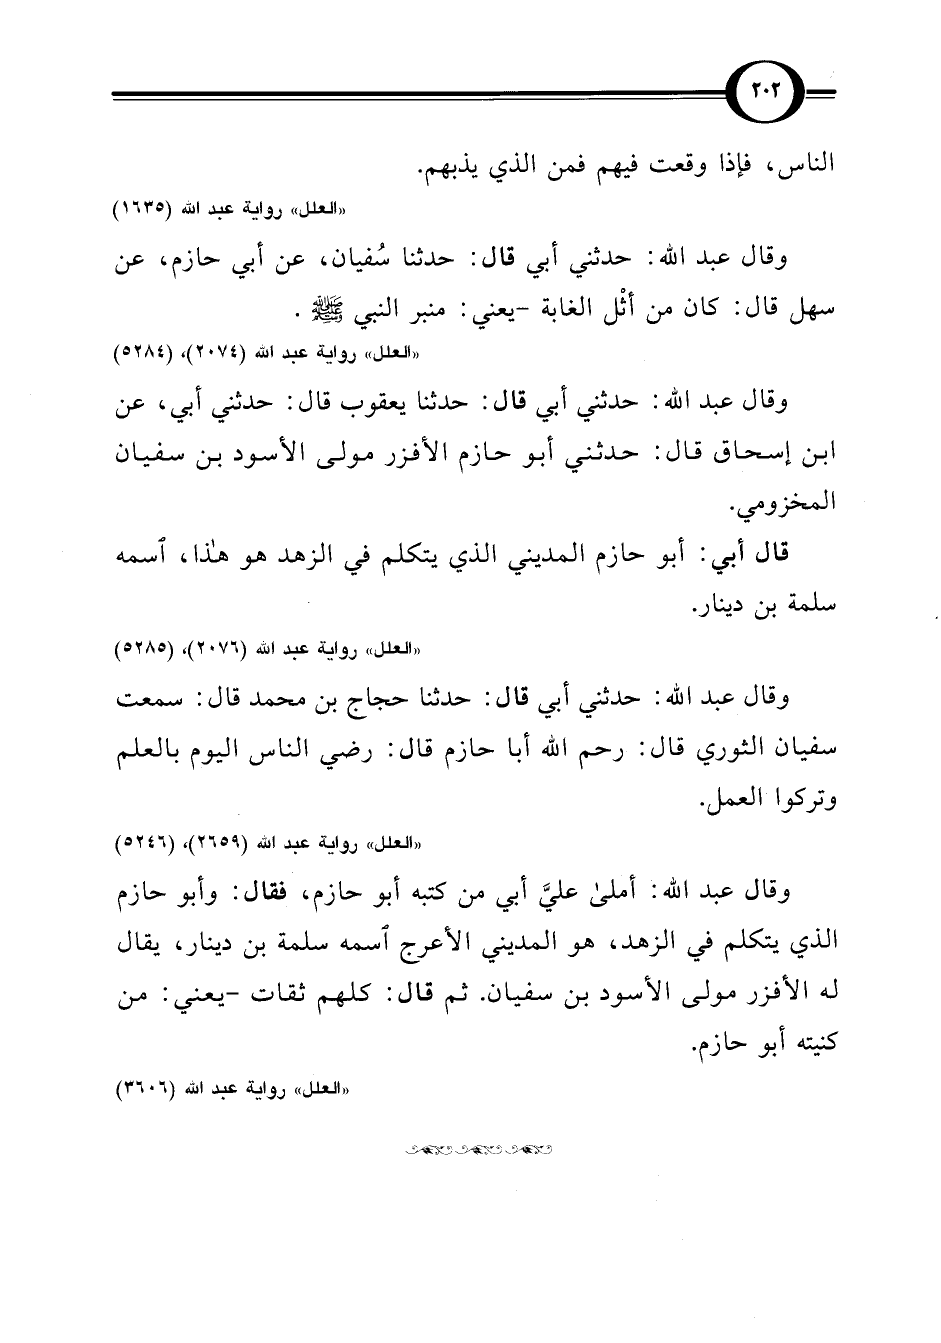 ٢٠٢
الناس، فإذا وقعت فيهم فمن الذي يذبهم.
«العلل» رواية عبد الله (١٦٣٥)
وقال عبد الله: حدثني أبي قال: حدثنا سُفيان، عن أبي حازم، عن
سهل قال: كان من أثْل الغابة -يعني: منبر النبي ﷺ .
«العلل» رواية عبد الله (٢٠٧٤)، (٥٢٨٤)
وقال عبد الله: حدثني أبي قال: حدثنا يعقوب قال: حدثني أبي، عن
ابن إسحاق قال: حدثني أبو حازم الأفزر مولى الأسود بن سفيان
المخزومي.
قال أبي: أبو حازم المديني الذي يتكلم في الزهد هو هذا، ٱسمه
سلمة بن دينار.
«العلل» رواية عبد الله (٢٠٧٦)، (٥٢٨٥)
وقال عبد الله: حدثني أبي قال: حدثنا حجاج بن محمد قال: سمعت
سفيان الثوري قال: رحم الله أبا حازم قال: رضي الناس اليوم بالعلم
وتركوا العمل.
«العلل» رواية عبد الله (٢٦٥٩)، (٥٢٤٦)
وقال عبد الله: أملىٰ عليَّ أبي من كتبه أبو حازم، فقال: وأبو حازم
الذي يتكلم في الزهد، هو المديني الأعرج ٱسمه سلمة بن دينار، يقال
له الأفزر مولى الأسود بن سفيان. ثم قال: كلهم ثقات -يعني: من
كنيته أبو حازم.
«العلل» رواية عبد الله (٣٦٠٦)